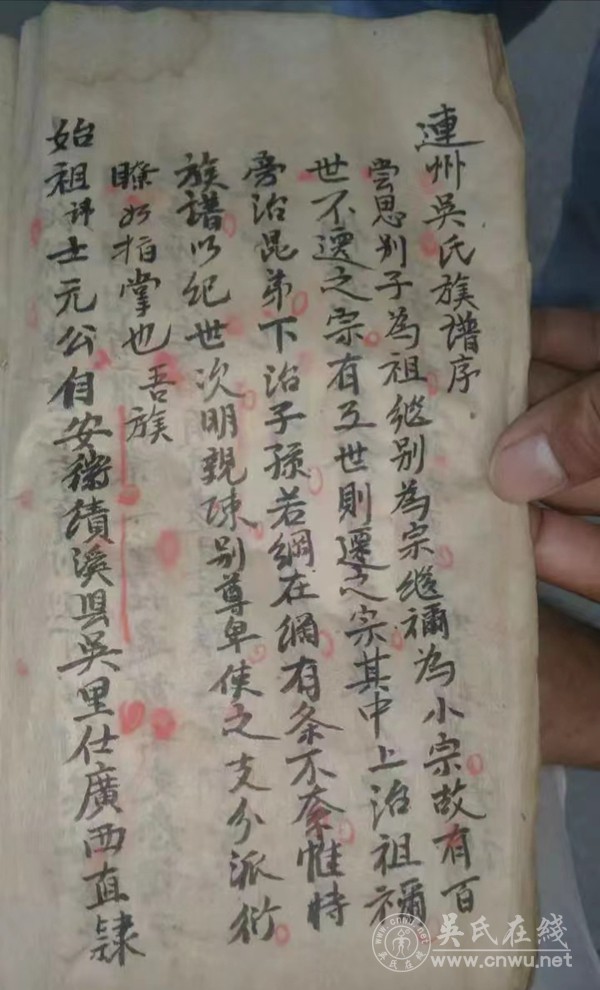 連州吳氏族譜序
嘗思别子為祖継别為宗継禰為小宗故有百
世不遷之宗有五世則遷之宗其中上治祖禰
旁治昆弟下治子孫若綱在綱有条不紊惟恃
族譜以纪世次明親疎别尊卑使之支分派衍
瞭如指掌也吾族
始祖諱士元公自安徽績溪县吳里仕廣西直隸
吳氏在线
www.cnwu.net